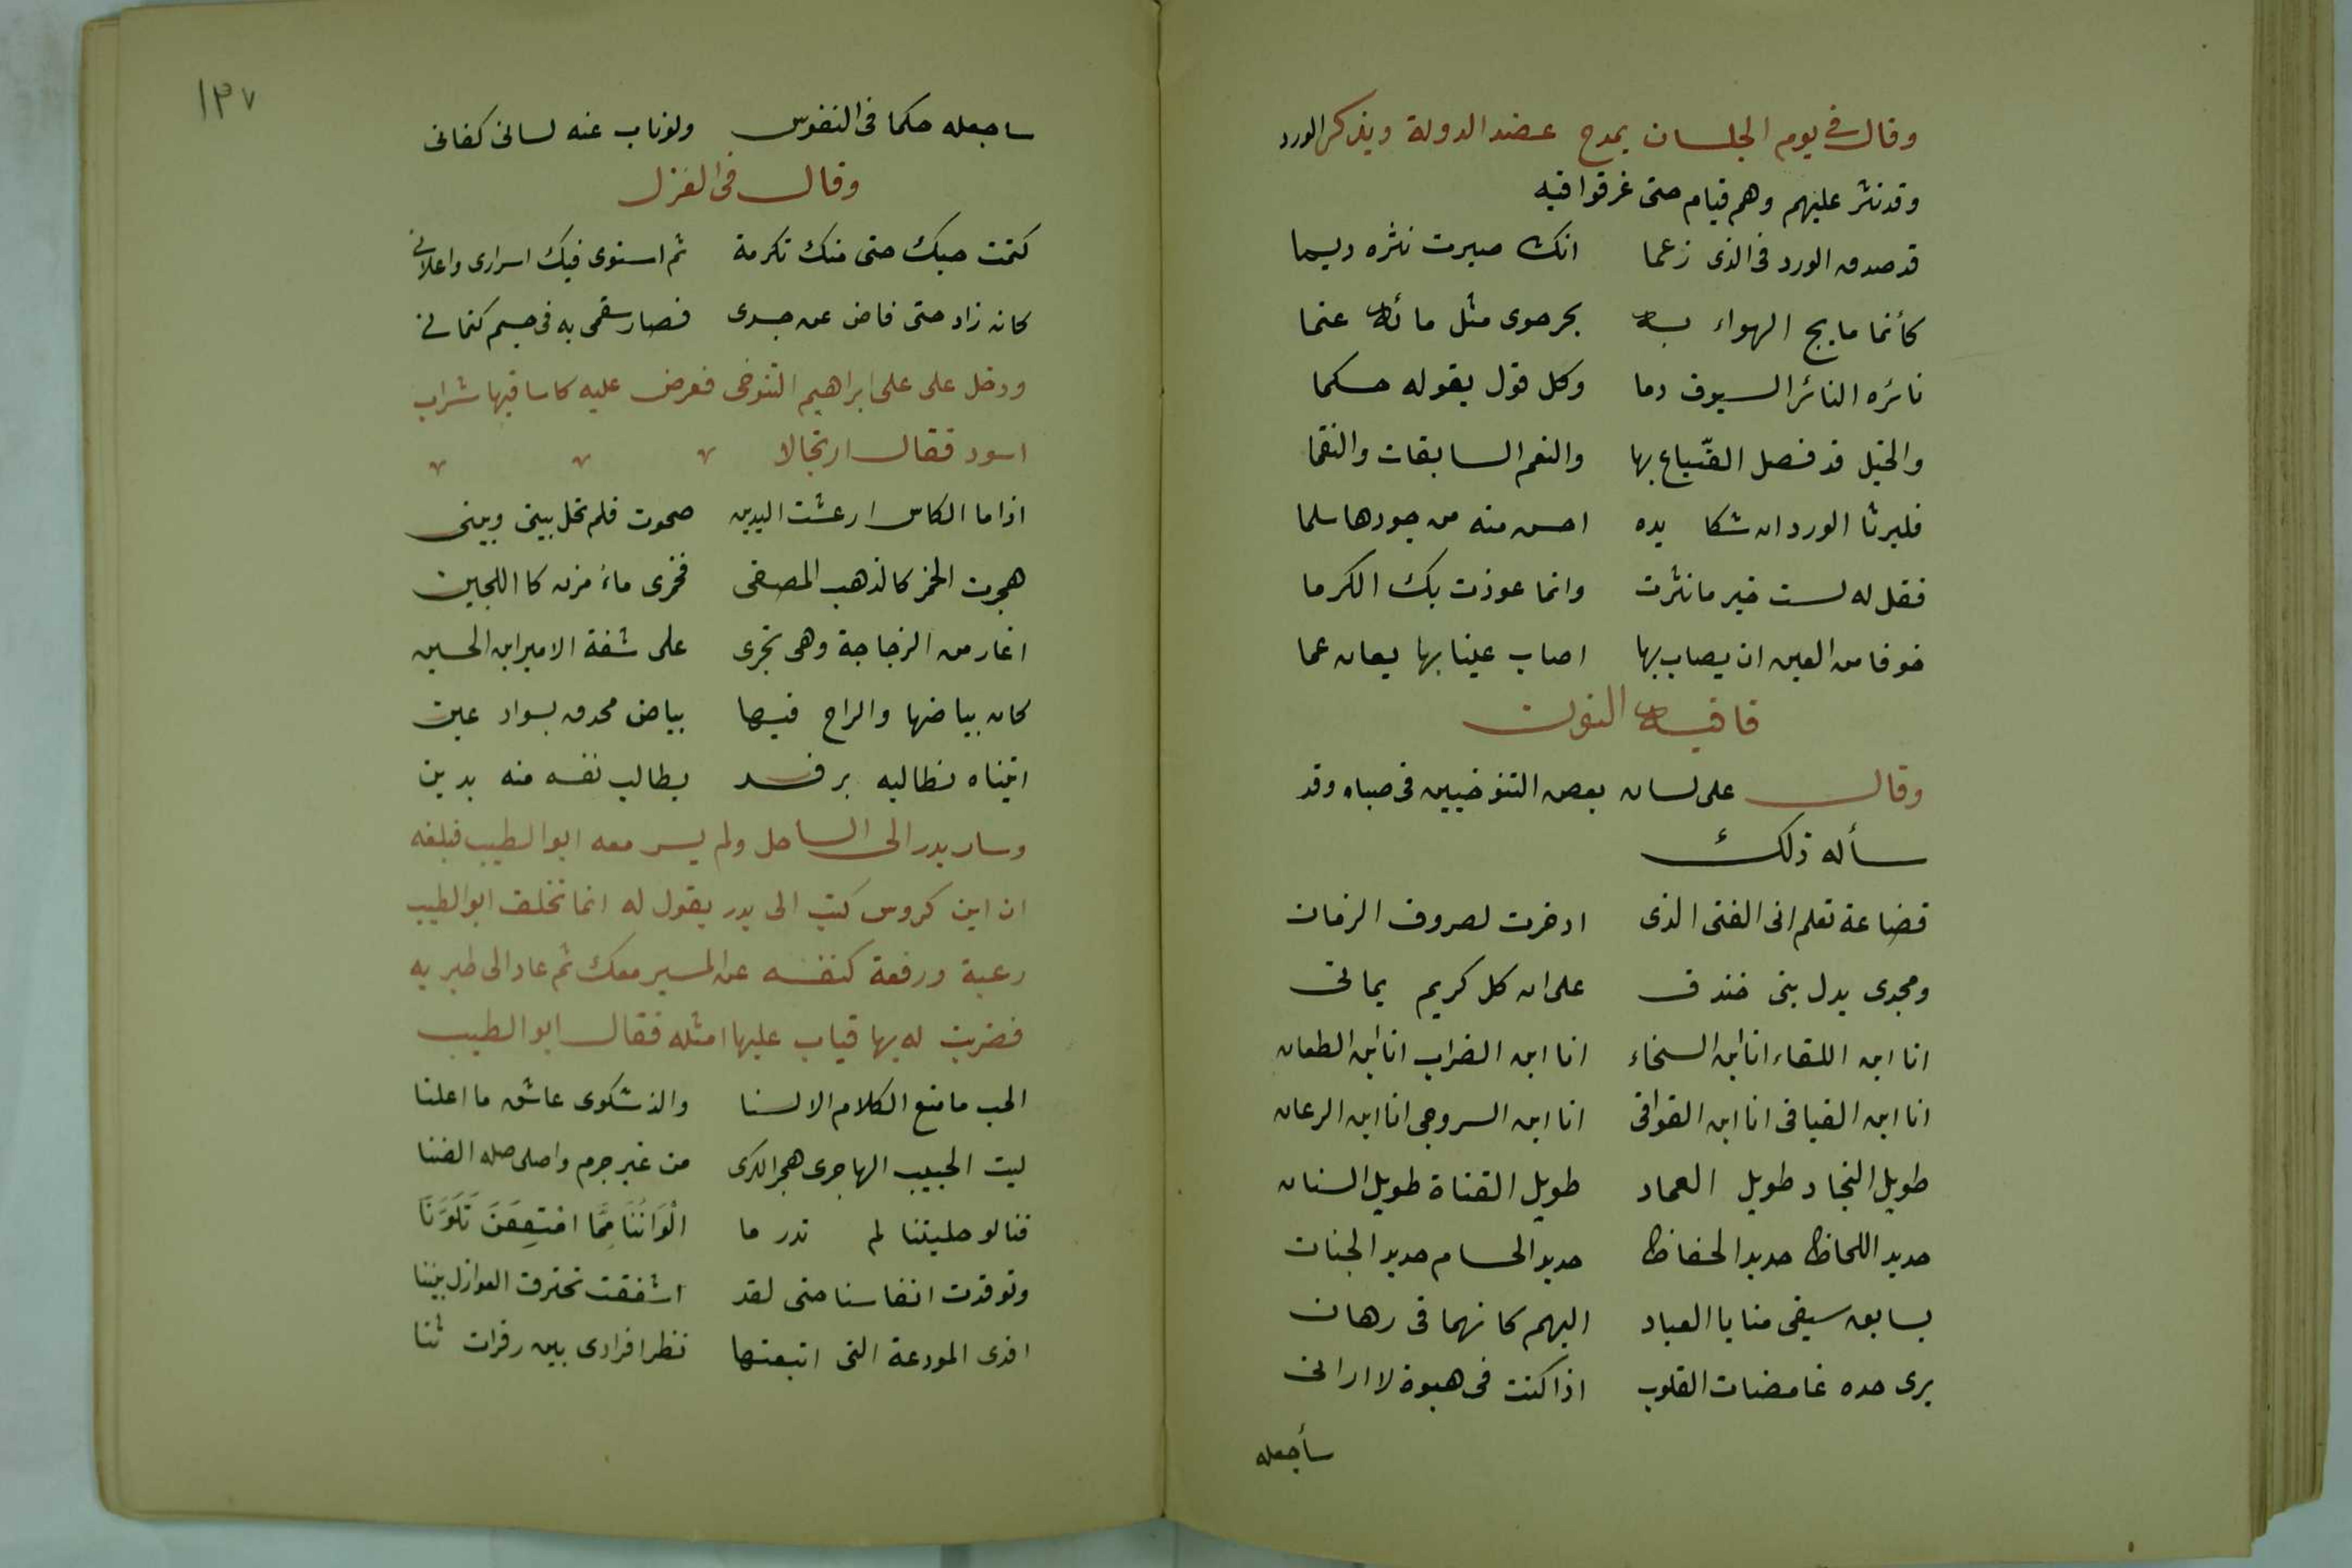 وقال في يوم الجلسان يمدح عضد الدولة ويذكر الورد
وقد نثر عليهم وهم قيام حتى غرقوا فيه
قد صدق الورد فى الذى زعما انك صيرت نثره ديما
كأنما مايج الهواء به بحر حوى مثل مائه عنما
ناثره الناثر السيوف دما وكل قول يقوله حكما
والخيل قد فصل الضياع بها والنعم السابقات والنقما
فليرنا الورد ان شكا يده احسن منه من جودها سلما
فقل له لست خير مانثرت وانما عوذت بك الكرما
خوفا من العين ان يصاب بها اصاب عينا بها يعان عما
قافيه النون
وقال على لسان بعض التنوخيين فى صباه وقد
سأله ذلك
قضاعة تعلم انى الفتى الذى ادخرت لصروف الزمان
ومجدى يدل بنى خندف على ان كل كريم يمانى
انا ابن اللقاء انا ابن السخاء انا ابن الضراب انا ابن الطعان
انا ابن الفيافى انا ابن القوافى انا ابن السروجى انا ابن الرعان
طويل النجاد طويل العماد طويل القناة طويل السنان
حديد اللحاظ حديد الحفاظ حديد الحسام حديد الجنان
يسابق سيفى منايا العباد اليهم كانهما فى رهان
يرى حده غامضات القلوب اذا كنت فى هبوة لا ارانى
سأجعله
١٣٧
ساجعله حكما فى النفوس ولو ناب عنه لسانى كفانى
وقال فى الغزل
كتمت حبك حتى منك تكرمة ثم استوى فيك اسرارى واعلانى
كانه زاد حتى فاض عن جسدى فصار سقمى به فى جسم كتمانى
ودخل على على ابراهيم التنوخى فعرض عليه كاسا فيها شراب
اسود فقال ارتجالا
اذا ما الكاس ارعشت اليدين صحوت فلم تحل بينى وبينى
هجرت الخمر كالذهب المصفى فخمرى ماء مزن كا اللجين
اغار من الزجاجة وهى تجرى على شفة الامير ابن الحسين
كان بياضها والراح فيها بياض محدق بسواد عين
اتيناه نطالبه برفد يطالب نفسه منه بدين
وسار بدر الى الساحل ولم يسر معه ابو الطيب فبلغه
ان ابن كروس كتب الى بدر يقول له انما تخلف ابو الطيب
رغبة ورفعة كنفسه عن المسير معك ثم عاد الى طبريه
فضربت له بها قباب عليها امثله فقال ابو الطيب
الحب ما منع الكلام الالسنا والذ شكوى عاشق ما اعلنا
ليت الحبيب الهاجرى هجر الكرى من غير جرم واصلى صله الضنا
فنا لو حليتنا لم تدر ما الْوَانُنَا مِمَّا امْتِقَعَنَ تَلَوُّنَا
وتوقدت انفاسنا حتى لقد اشفقت تحترق العوازل بيننا
افدى المودعة التى اتبعتها نظرا فرادى بين زفرات ثنا